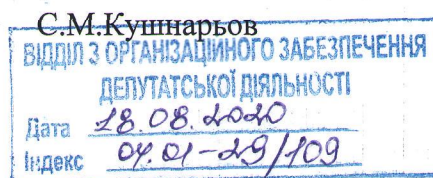 С.М.Кушнарьов
ВІДДІЛ З ОРГАНІЗАЦІЙНОГО ЗАБЕЗПЕЧЕННЯ
ДЕПУТАТСЬКОЇ ДІЯЛЬНОСТІ
Дата 18.08.2020
Індекс 04.01-29/109